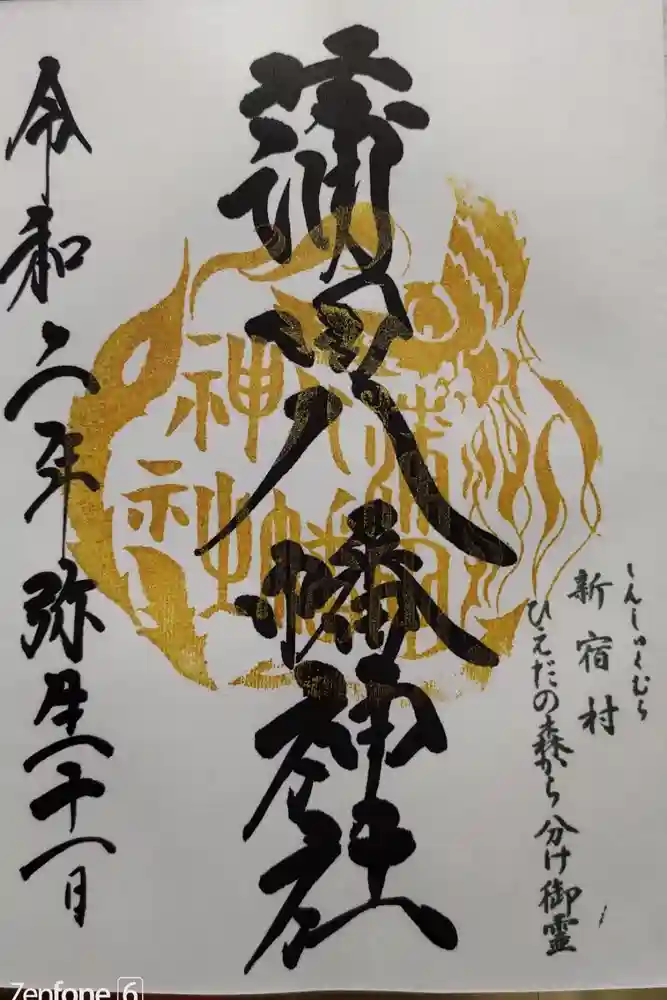 しんしゅくむら
新宿村
ひえだの森から分け御霊
蒲田八幡神社
蒲田
八幡
神社
令和二年弥生二十一日
Zenfone 6